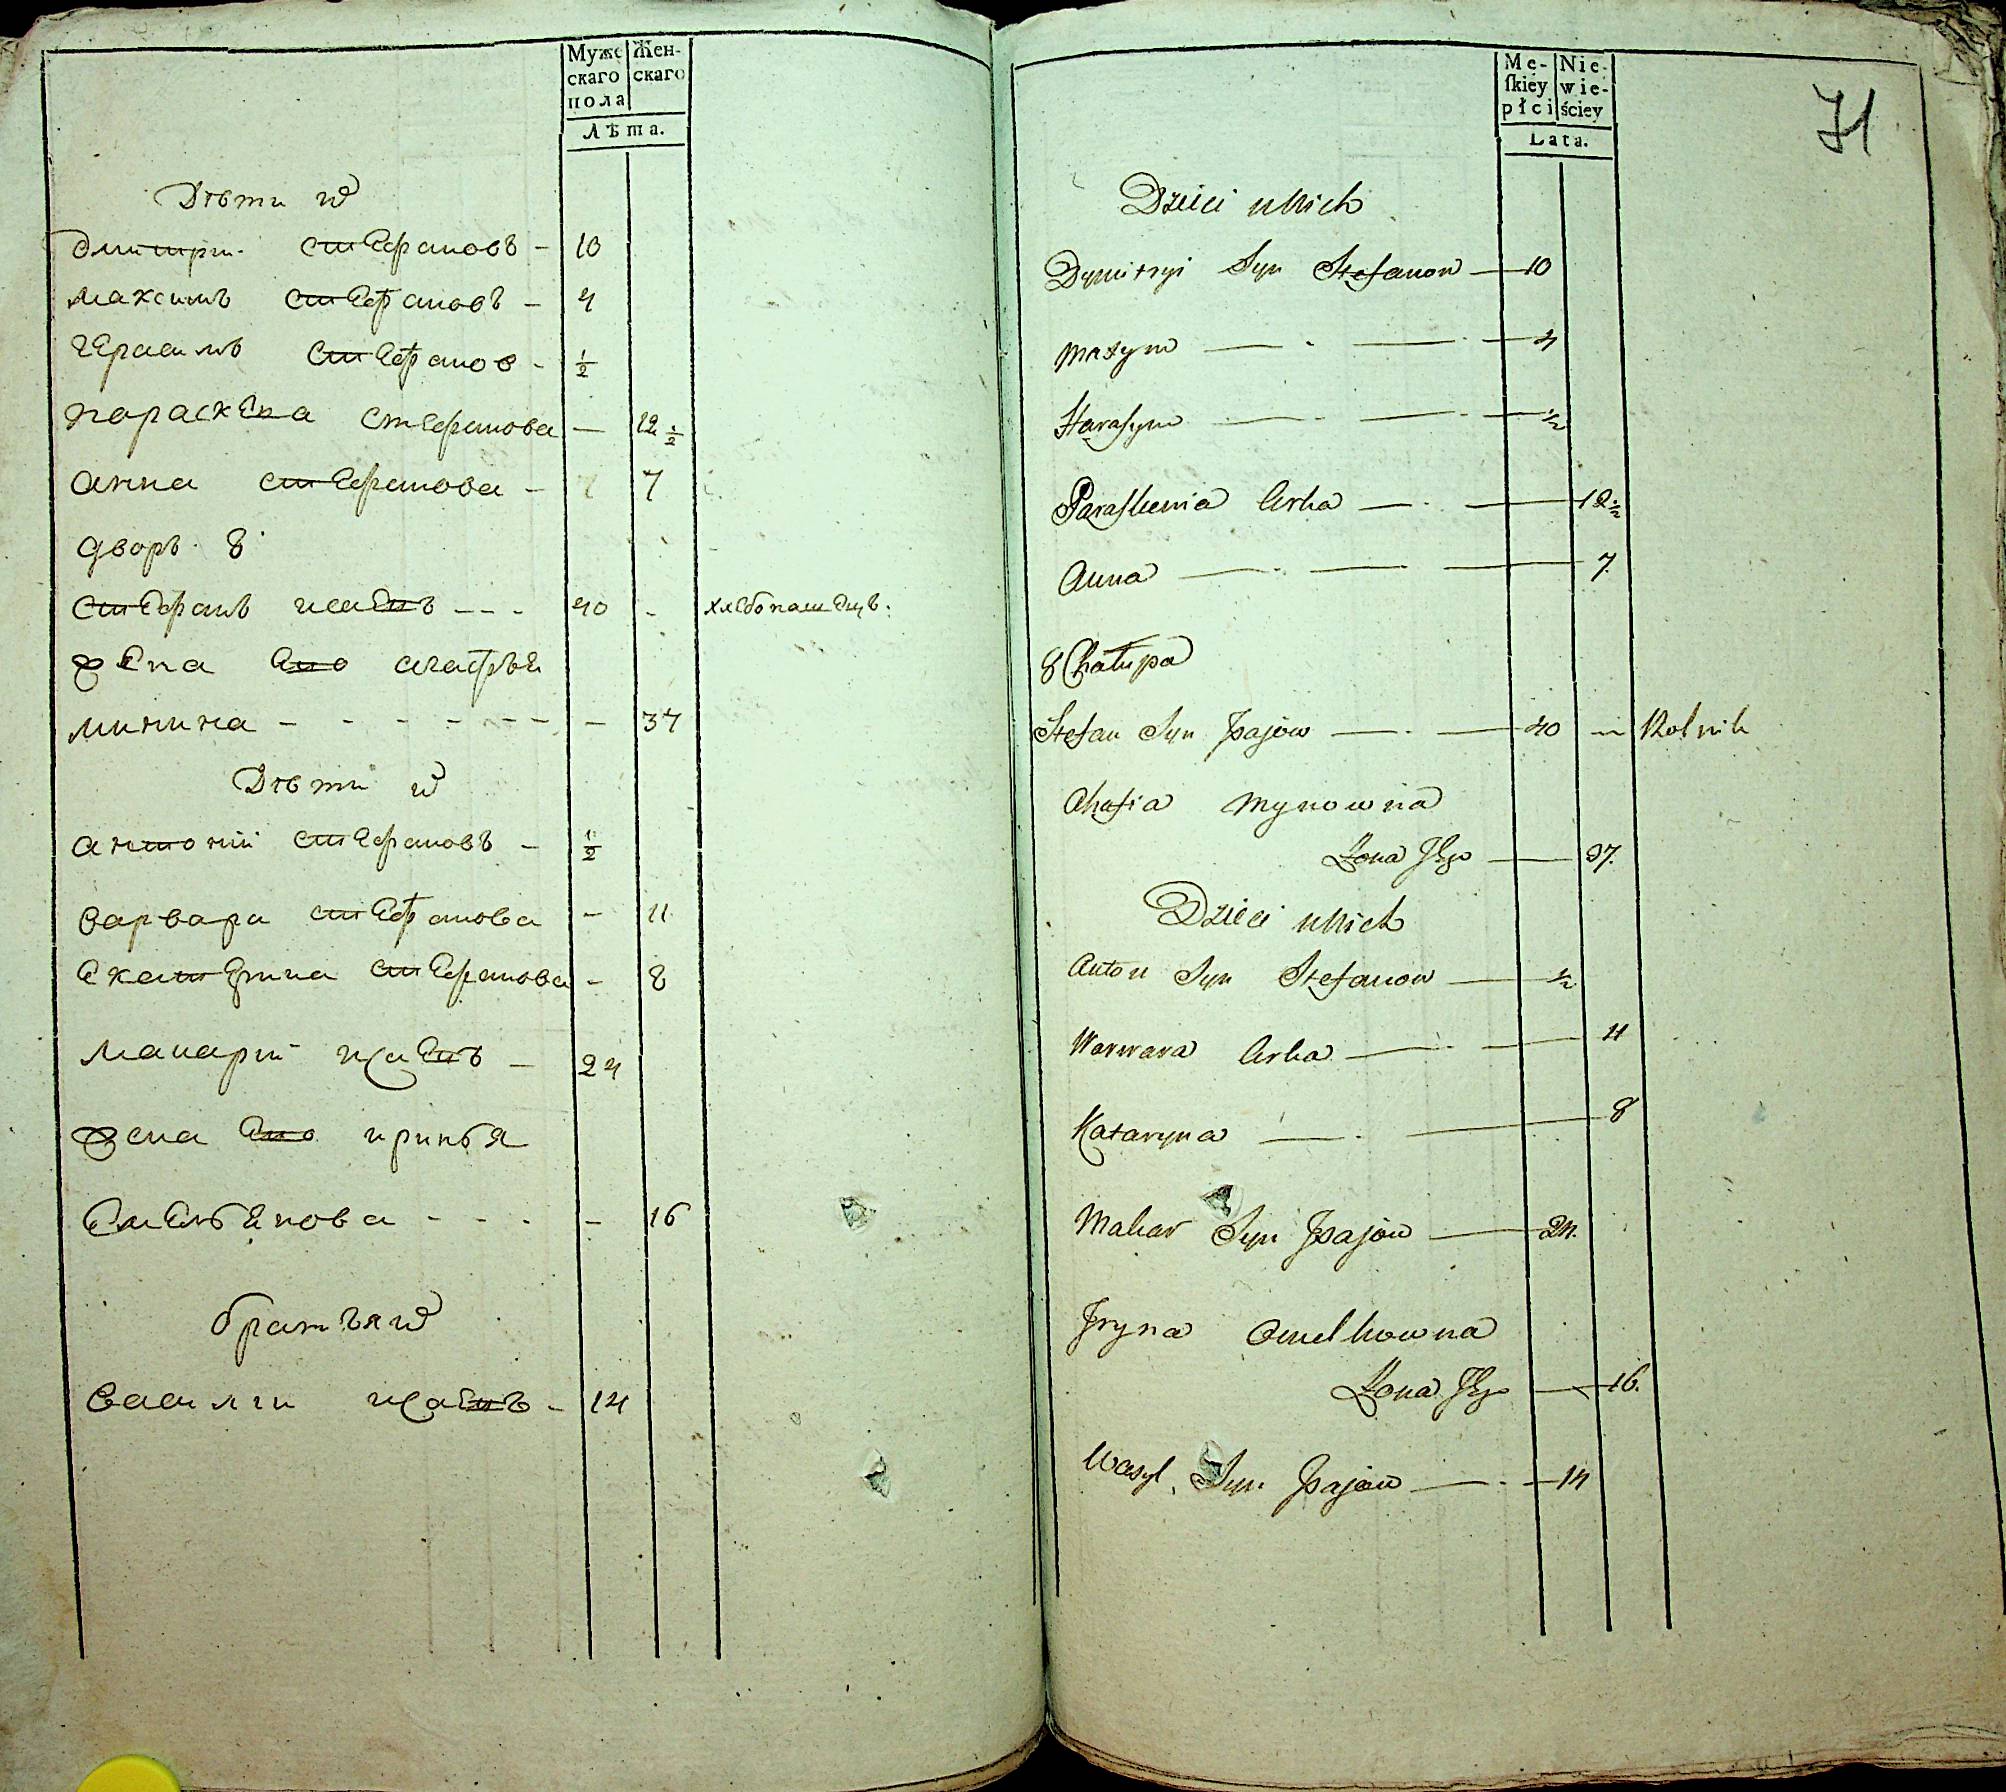 Мужескаго пола
Женскаго
Лѣта.
Дѣти их
Дмитри Стефановъ - 10
Максимъ Стефановъ - 4
Герасимъ Стефанов - 1/2
Параскева Стефанова - 12 1/2
Анна Стефанова - 7
дворъ 8
Стефанъ Исаевъ - - - 40 - хлебопашецъ.
жена ево Агафья
Минина - - - - - - - 37
Дѣти их
Антоній Стефановъ - 1/2
Варвара Стефанова - 11
Екатерина Стефанова - 8
Макарій Исаевъ - 24
жена ево Иринья
Емельянова - - - - 16
братья их
Васили Исаевъ - 14
Mę-skiéy płci
Nie-wie-ściey
Lata.
71
Dzieci u Nich
Dymitryi Syn Stefanow — 10
Maxym — . — . — 4
Harasym — . — . — 1/2
Paraskewia Crka — . — 12 1/2
Anna — . — — 7.
8 Chałupa
Stefan Syn Jsajów — . — 40 — Rolnik
Ahafia Mynowna
Żona Jego — 37.
Dzieci u Nich
Anton Syn Stefanow — 1/2
Warwara Crka — . — 11
Kataryna — . — 8
Makar Syn Jsajów — 24.
Jryna Omelkowna
Żona Jego — 16.
Wasyl Syn Jsajów — . — 14